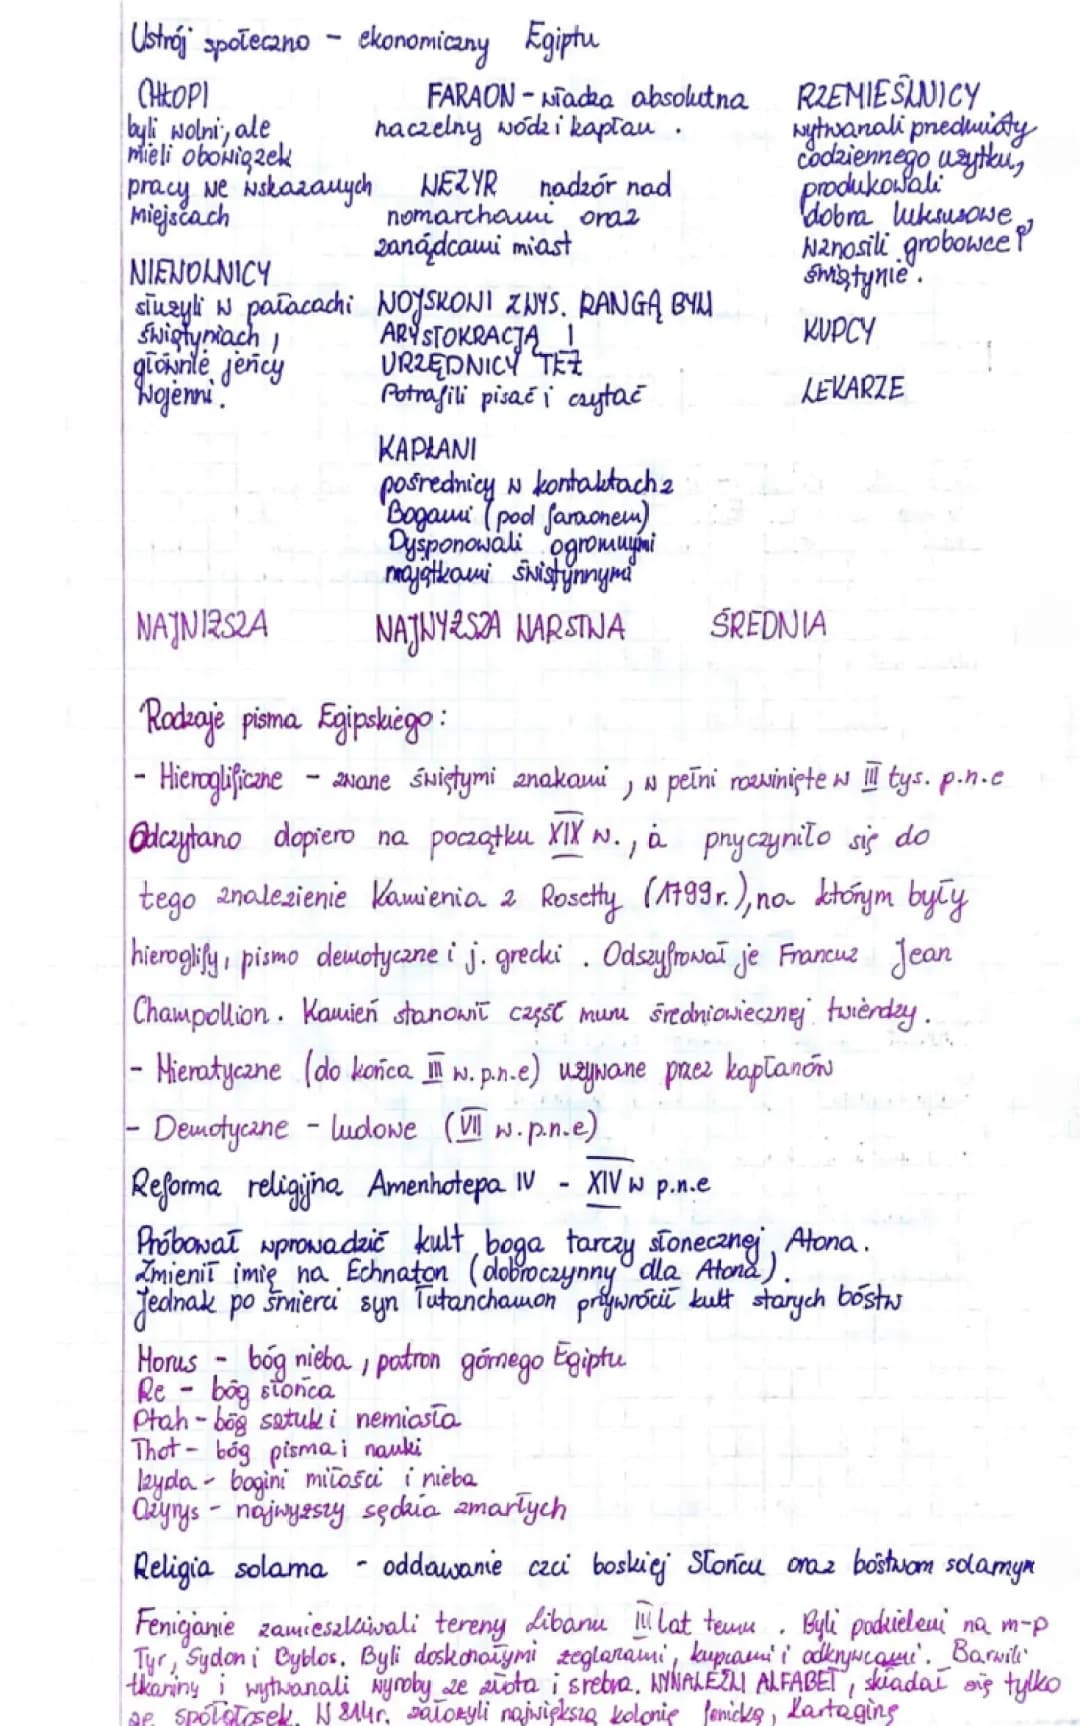 Ustrój społeczno - ekonomiczny Egiptu
CHŁOPI
byli wolni, ale
mieli obowiązek
pracy we wskazanych
miejscach
NIEWOLNICY
służyli w pałacach i
świątyniach,
głównie jeńcy
wojenni.
FARAON - władza absolutna
naczelny wódz i kapłan.
WEZYR nadzór nad
nomarchami oraz
zarządcami miast
WOJSKOWI Z WYS. RANGĄ BYLI
ARYSTOKRACJĄ I
URZĘDNICY TEŻ
Potrafili pisać i czytać
KAPŁANI
pośrednicy w kontaktach z
Bogami (pod faraonem)
Dysponowali ogromnymi
majątkami świątynnymi
RZEMIEŚLNICY
wytwarzali przedmioty
codziennego użytku,
produkowali
dobra luksusowe,
wznosili grobowce i
świątynie.
KUPCY
LEKARZE
NAJNIŻSZA NAJWYŻSZA WARSTWA ŚREDNIA
Rodzaje pisma Egipskiego:
- Hieroglificzne - zwane świętymi znakami, w pełni rozwinięte w III tys. p.n.e
Odczytano dopiero na początku XIX w., a przyczyniło się do
tego znalezienie Kamienia z Rosetty (1799r.), na którym były
hieroglify, pismo demotyczne i j. grecki. Odszyfrował je Francuz Jean
Champollion. Kamień stanowił część muru średniowiecznej twierdzy.
- Hieratyczne (do końca III w. p.n.e) używane przez kapłanów
- Demotyczne - ludowe (VII w. p.n.e)
Reforma religijna Amenhotepa IV - XIV w p.n.e
Próbował wprowadzić kult boga tarczy słonecznej, Atona.
Zmienił imię na Echnaton (dobroczynny dla Atona).
Jednak po śmierci syn Tutanchamon przywrócił kult starych bóstw
Horus - bóg nieba, patron górnego Egiptu
Re - bóg słońca
Ptah - bóg sztuk i rzemiosła
Thot - bóg pisma i nauki
Izyda - bogini miłości i nieba
Ozyrys - najwyższy sędzia zmarłych
Religia solarna - oddawanie czci boskiej Słońcu oraz bóstwom solarnym
Fenicjanie zamieszkiwali tereny Libanu lat temu. Byli podzieleni na m-p
Tyr, Sydon i Byblos. Byli doskonałymi żeglarzami, kupcami i odkrywcami. Barwili
tkaniny i wytwarzali wyroby ze złota i srebra. WYNALEŹLI ALFABET, składał się tylko
ze spółgłosek. W 814r. założyli największą kolonię fenicką, Kartaginę